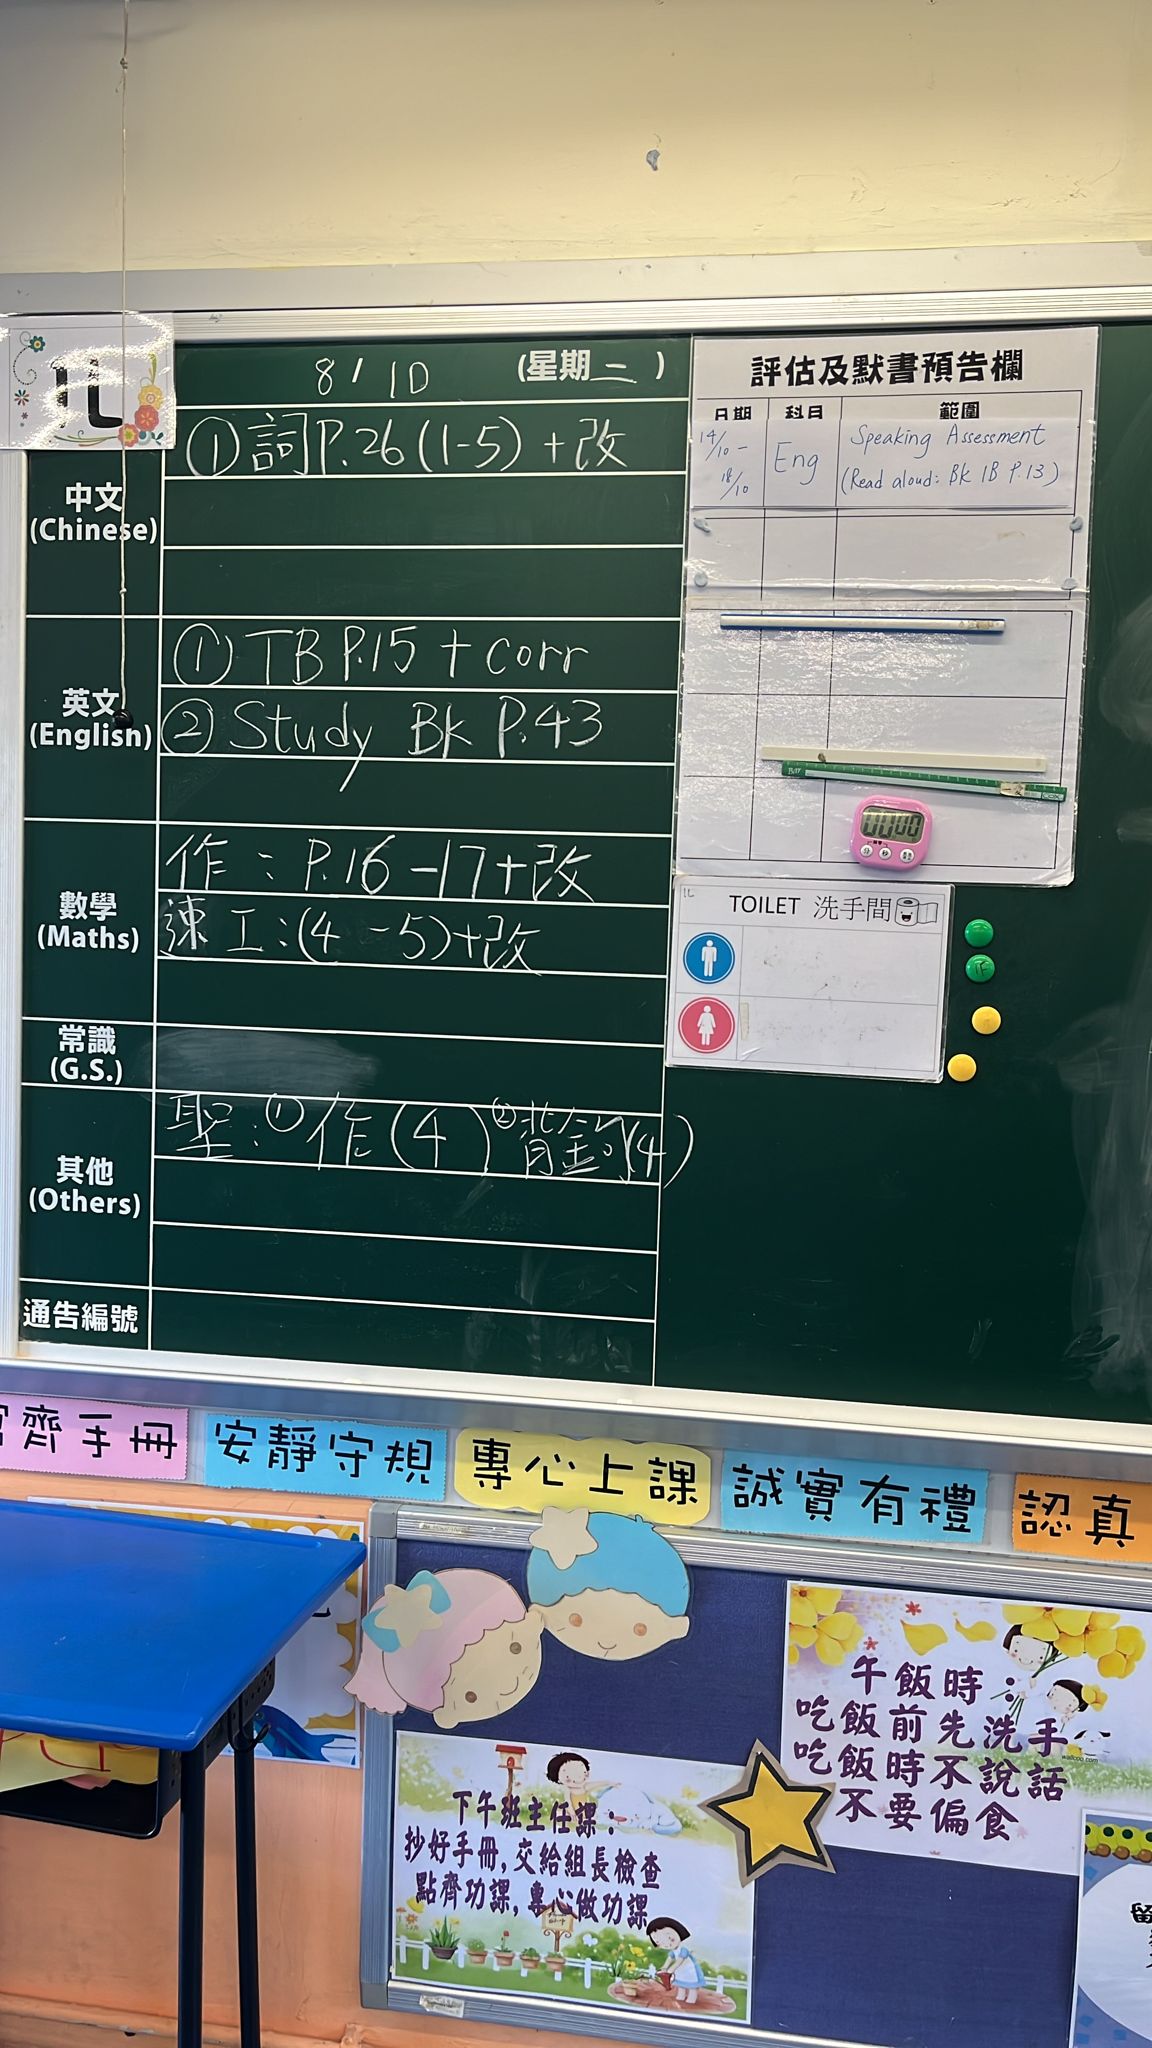 1L
8/10 (星期二)
中文
(Chinese)
①詞P.26(1-5)+改
英文
(English)
①TB P.15 + corr
②Study Bk P.43
數學
(Maths)
作：P.16-17+改
速工:(4-5)+改
常識
(G.S.)
其他
(Others)
聖:①作(4)②背金句(4)
通告編號
評估及默書預告欄
日期 科目 範圍
14/10 - 18/10 Eng Speaking Assessment
(Read aloud: Bk 1B P.13)
00:00
1L
TOILET 洗手間
齊手冊
安靜守規
專心上課
誠實有禮
認真
午飯時：
吃飯前先洗手
吃飯時不說話
不要偏食
下午班主任課：
抄好手冊,交給組長檢查
點齊功課,專心做功課
留